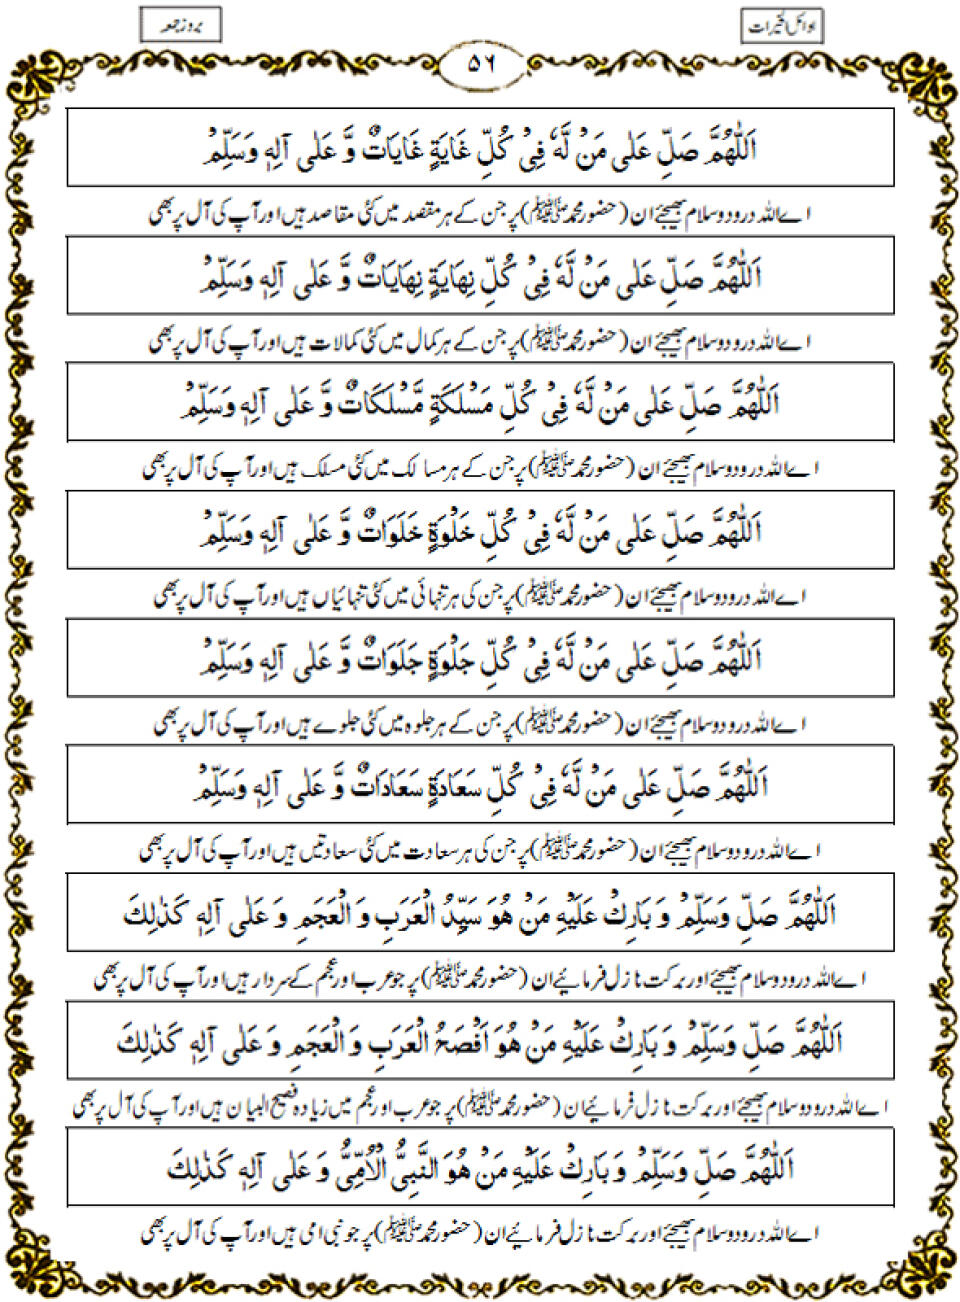 اوائل الخیرات
بروز جمعہ
۵۶
اَللّٰهُمَّ صَلِّ عَلٰى مَنْ لَّهٗ فِىْ كُلِّ غَايَةٍ غَايَاتٌ وَّ عَلٰى آلِهٖ وَسَلِّمْ
اے اللہ درود و سلام بھیجئے ان (حضور محمد ﷺ) پر جن کے ہر مقصد میں کئی مقاصد ہیں اور آپ کی آل پر بھی
اَللّٰهُمَّ صَلِّ عَلٰى مَنْ لَّهٗ فِىْ كُلِّ نِهَايَةٍ نِهَايَاتٌ وَّ عَلٰى آلِهٖ وَسَلِّمْ
اے اللہ درود و سلام بھیجئے ان (حضور محمد ﷺ) پر جن کے ہر کمال میں کئی کمالات ہیں اور آپ کی آل پر بھی
اَللّٰهُمَّ صَلِّ عَلٰى مَنْ لَّهٗ فِىْ كُلِّ مَسْلَكَةٍ مَّسْلَكَاتٌ وَّ عَلٰى آلِهٖ وَسَلِّمْ
اے اللہ درود و سلام بھیجئے ان (حضور محمد ﷺ) پر جن کے ہر مسالک میں کئی مسلک ہیں اور آپ کی آل پر بھی
اَللّٰهُمَّ صَلِّ عَلٰى مَنْ لَّهٗ فِىْ كُلِّ خَلْوَةٍ خَلَوَاتٌ وَّ عَلٰى آلِهٖ وَسَلِّمْ
اے اللہ درود و سلام بھیجئے ان (حضور محمد ﷺ) پر جن کی ہر تنہائی میں کئی تنہائیاں ہیں اور آپ کی آل پر بھی
اَللّٰهُمَّ صَلِّ عَلٰى مَنْ لَّهٗ فِىْ كُلِّ جَلْوَةٍ جَلَوَاتٌ وَّ عَلٰى آلِهٖ وَسَلِّمْ
اے اللہ درود و سلام بھیجئے ان (حضور محمد ﷺ) پر جن کے ہر جلوہ میں کئی جلوے ہیں اور آپ کی آل پر بھی
اَللّٰهُمَّ صَلِّ عَلٰى مَنْ لَّهٗ فِىْ كُلِّ سَعَادَةٍ سَعَادَاتٌ وَّ عَلٰى آلِهٖ وَسَلِّمْ
اے اللہ درود و سلام بھیجئے ان (حضور محمد ﷺ) پر جن کی ہر سعادت میں کئی سعادتیں ہیں اور آپ کی آل پر بھی
اَللّٰهُمَّ صَلِّ وَسَلِّمْ وَ بَارِكْ عَلَيْهِ مَنْ هُوَ سَيِّدُ الْعَرَبِ وَ الْعَجَمِ وَ عَلٰى آلِهٖ كَذٰلِكَ
اے اللہ درود و سلام بھیجئے اور برکت نازل فرمائیے ان (حضور محمد ﷺ) پر جو عرب اور عجم کے سردار ہیں اور آپ کی آل پر بھی
اَللّٰهُمَّ صَلِّ وَسَلِّمْ وَ بَارِكْ عَلَيْهِ مَنْ هُوَ اَفْصَحُ الْعَرَبِ وَ الْعَجَمِ وَ عَلٰى آلِهٖ كَذٰلِكَ
اے اللہ درود و سلام بھیجئے اور برکت نازل فرمائیے ان (حضور محمد ﷺ) پر جو عرب اور عجم میں زیادہ فصیح البیان ہیں اور آپ کی آل پر بھی
اَللّٰهُمَّ صَلِّ وَسَلِّمْ وَ بَارِكْ عَلَيْهِ مَنْ هُوَ النَّبِىُّ الْاُمِّىُّ وَ عَلٰى آلِهٖ كَذٰلِكَ
اے اللہ درود و سلام بھیجئے اور برکت نازل فرمائیے ان (حضور محمد ﷺ) پر جو نبی امی ہیں اور آپ کی آل پر بھی